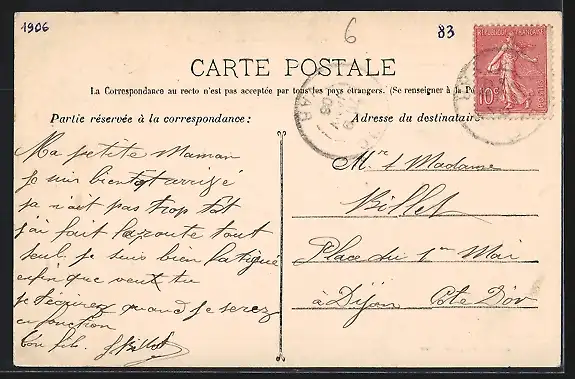 1906
6
83
REPUBLIQUE FRANÇAISE
10c
CARTE POSTALE
La Correspondance au recto n'est pas acceptée par tous les pays étrangers. (Se renseigner à la Po
Partie réservée à la correspondance:
Ma petite Maman
je suis bientot arrivé
sa n'ait pas trop tot
j'ai fait la route tout
seul. je suis bien fatigué
enfin que veut tu
je t'écrirez quand je serez
en fonction
ton fils. Billet
Adresse du destinataire
Mr & Madame
Billet
Place du 1er Mai
à Dijon Cote D'or
VAR